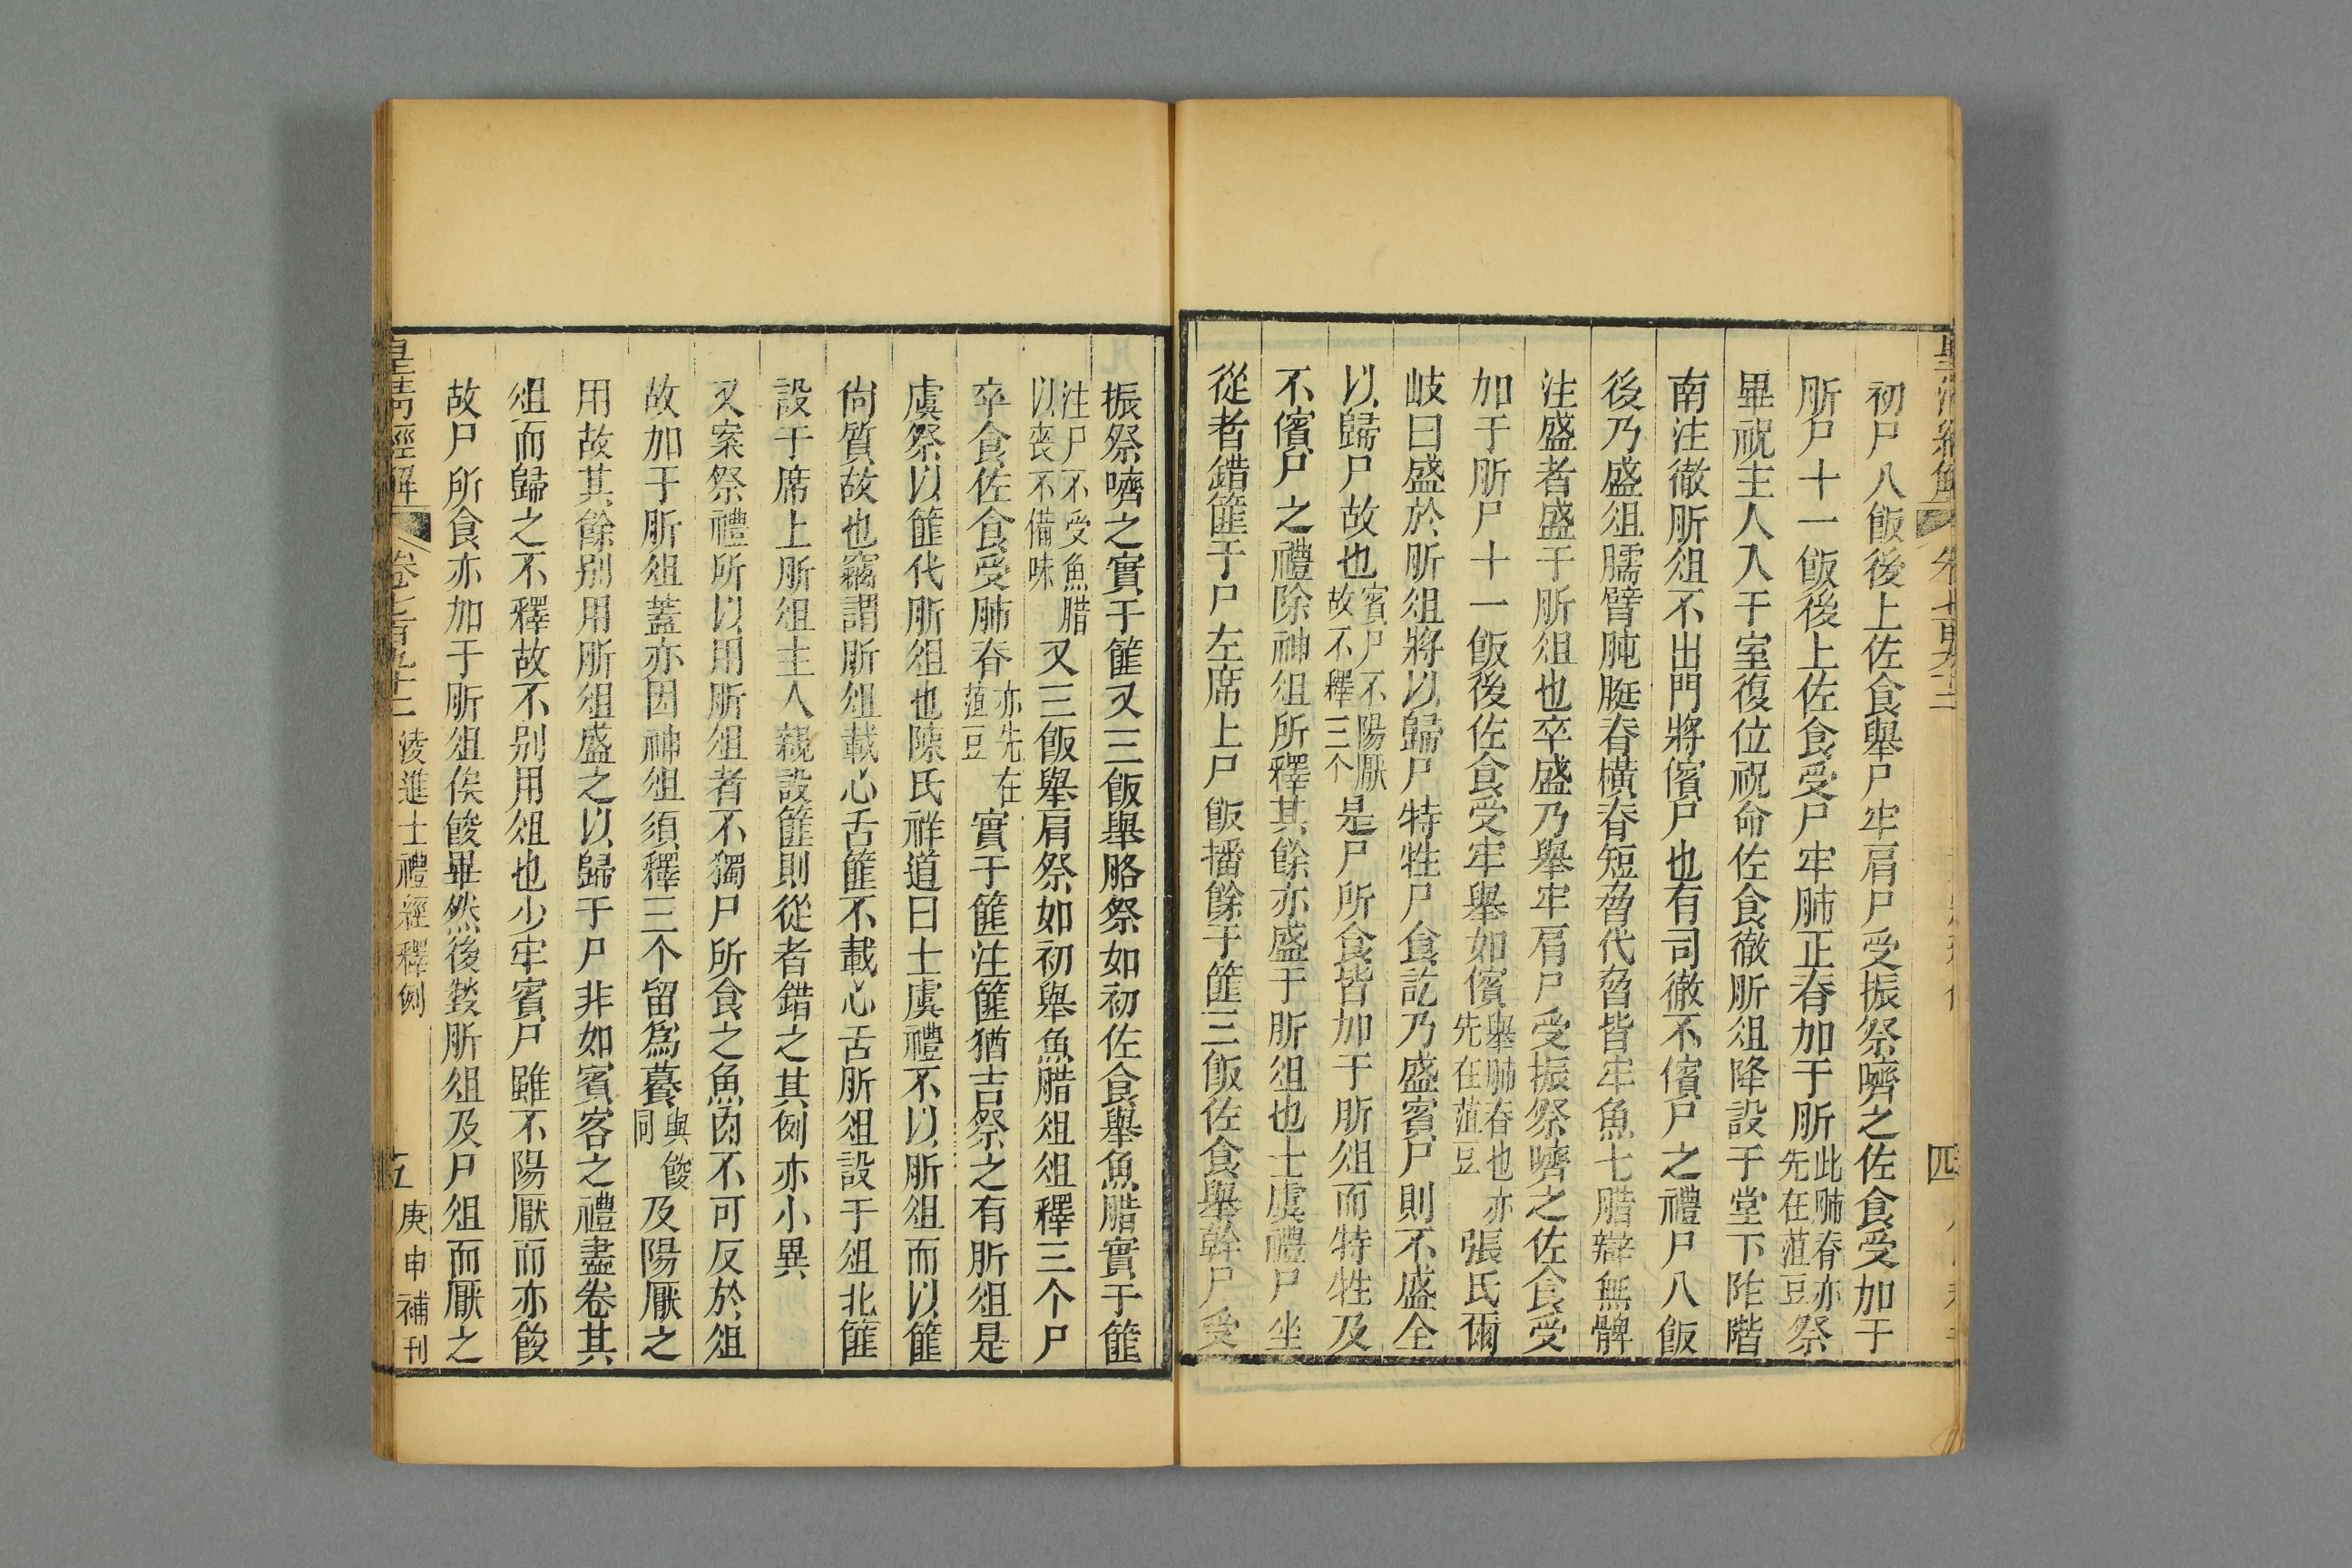 初尸八飯後上佐食舉尸牢肩尸受振祭嚌之佐食受加于
肵尸十一飯後上佐食受尸牢肺正脊加于肵此肺脊亦先在葅豆祭
畢祝主人入于室復位祝命佐食徹肵俎降設于堂下阼階
南注徹肵俎不出門將儐尸也有司徹不儐尸之禮尸八飯
後乃盛俎臑臂肫脡脊橫脊短脅代脅皆牢魚七腊辯無髀
注盛者盛于肵俎也卒盛乃舉牢肩尸受振祭嚌之佐食受
加于肵尸十一飯後佐食受牢舉如儐舉肺脊也亦先在葅豆張氏爾
岐曰盛於肵俎將以歸尸特牲尸食訖乃盛賓尸則不盛全
以歸尸故也賓尸不陽厭故不釋三个是尸所食皆加于肵俎而特牲及
不儐尸之禮除神俎所釋其餘亦盛于肵俎也士虞禮尸坐
從者錯篚于尸左席上尸飯播餘于篚三飯佐食舉幹尸受
振祭嚌之實于篚又三飯舉胳祭如初佐食舉魚腊實于篚
注尸不受魚腊以喪不備味又三飯舉肩祭如初舉魚腊俎俎釋三个尸
卒食佐食受肺脊亦先在葅豆實于篚注篚猶吉祭之有肵俎是
虞祭以篚代肵俎也陳氏祥道曰士虞禮不以肵俎而以篚
尙質故也竊謂肵俎載心舌篚不載心舌肵俎設于俎北篚
設于席上肵俎主人親設篚則從者錯之其例亦小異
又案祭禮所以用肵俎者不獨尸所食之魚肉不可反於俎
故加于肵俎蓋亦因神俎須釋三个留爲餕與餕同及陽厭之
用故其餘別用肵俎盛之以歸于尸非如賓客之禮盡卷其
俎而歸之不釋故不別用俎也少牢賓尸雖不陽厭而亦餕
故尸所食亦加于肵俎俟餕畢然後燅肵俎及尸俎而厭之
皇淸經解 卷七百九十二 淩進士禮經釋例 五 庚申補刊